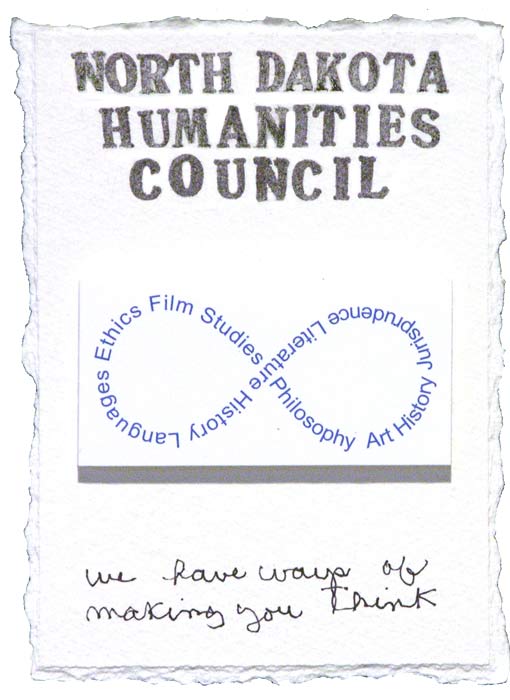 NORTH DAKOTA
HUMANITIES
COUNCIL
Ethics Film Studies Philosophy Art History Jurisprudence Literature History Languages
we have ways of
making you think